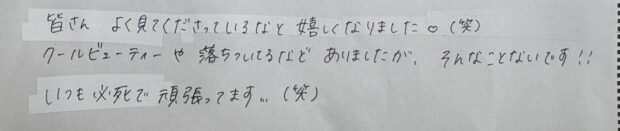 皆さん よく見てくださっているなと 嬉しくなりました♡(笑)
クールビューティーや 落ちついてるなど ありましたが、そんなことないです!!
いつも必死で 頑張ってます…(笑)